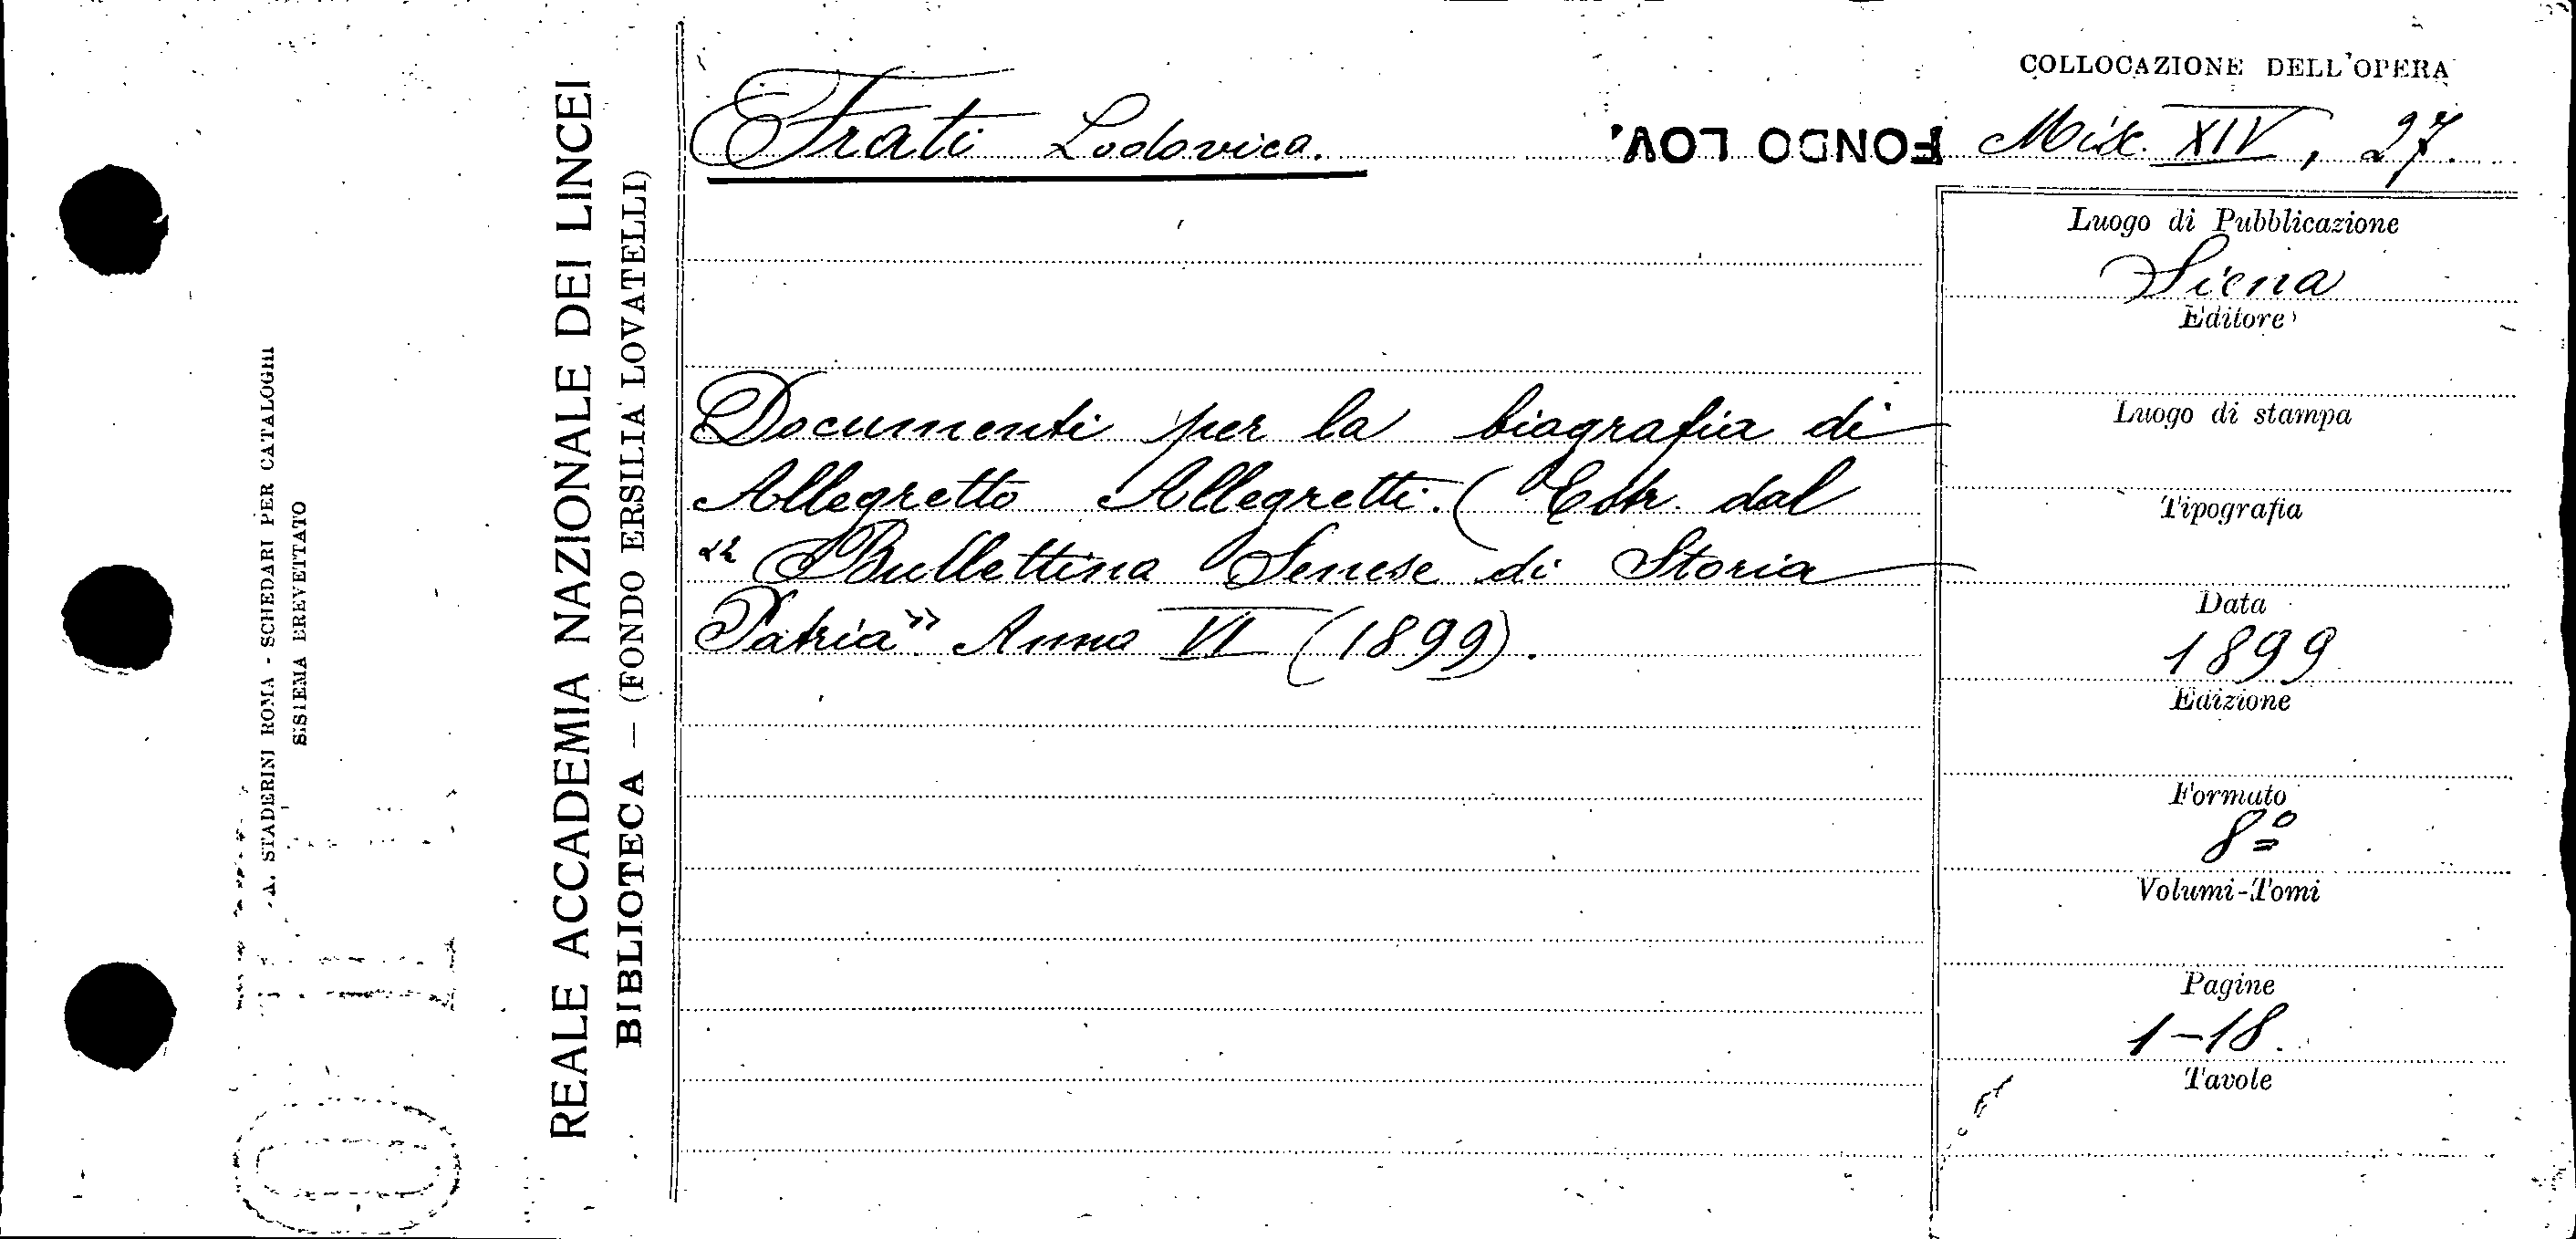 COLLOCAZIONE DELL'OPERA
Frati Lodovico.
FONDO LOV.
Misc. XIV, 27.
Documenti per la biografia di
Allegretto Allegretti. (Estr. dal
"Bullettino Senese di Storia
Patria" Anno VI (1899).
Luogo di Pubblicazione
Siena
Editore
Luogo di stampa
Tipografia
Data
1899
Edizione
Formato
8º
Volumi-Tomi
Pagine
1-18.
Tavole
REALE ACCADEMIA NAZIONALE DEI LINCEI
BIBLIOTECA — (FONDO ERSILIA LOVATELLI)
A. STADERINI ROMA - SCHEDARI PER CATALOGHI
SISTEMA BREVETTATO